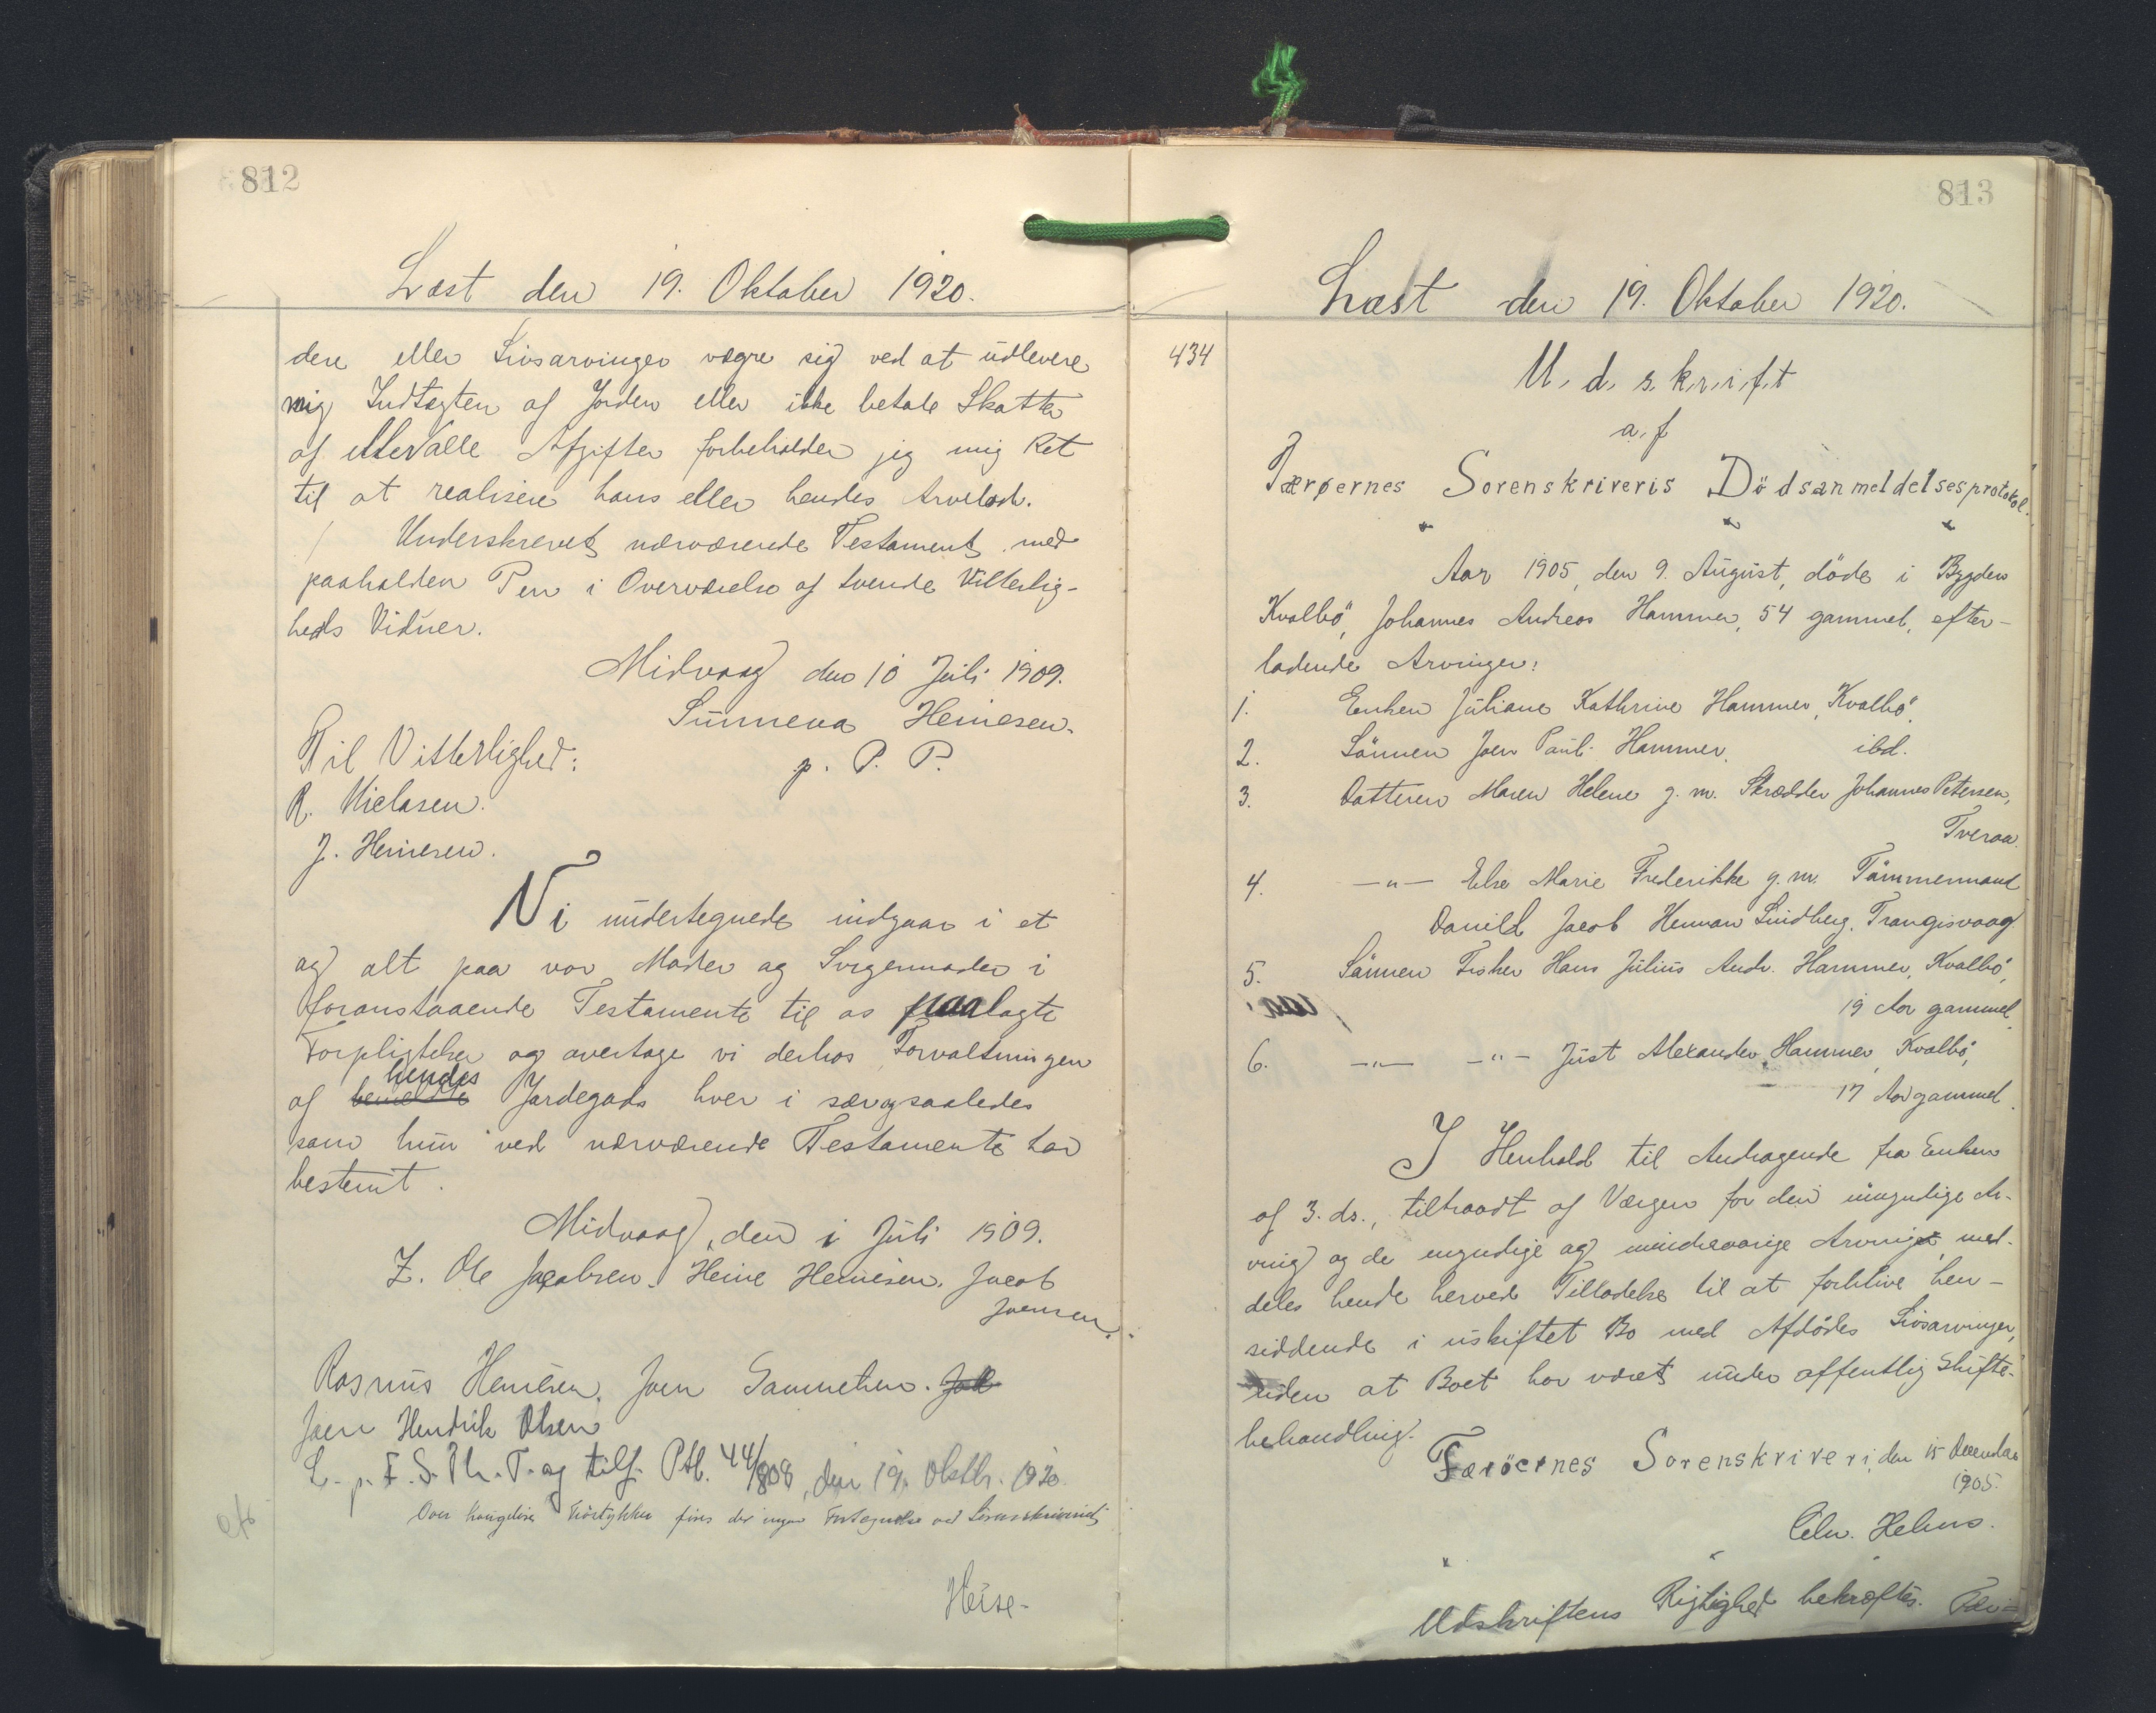 812
Læst den 19. Oktober 1920.
dere eller Livsarvinger vægre sig ved at udlevere
mig Indtægten af Jorden eller ikke betale Skatter
af eller alle Afgifter forbeholder jeg mig Ret
til at realisere hans eller hendes Arvelod.
Underskrevet nærværende Testament med
paaholden Pen i Overværelse af tvende Vitterlig-
heds Vidner.
Midvaag den 10 Juli 1909.
Sunneva Heinesen.
p. P. P.
Til Vitterlighed:
R. Nielasen.
J. Heinesen.
Vi undertegnede indgaar i et
og alt paa vor Moder og Svigermoder i
foranstaaende Testamente til os paalagte
Forpligtelser og overtage vi derhos Forvaltningen
hendes
af Jordegods hver i sær og saaledes
som hun ved nærværende Testamente har
bestemt.
Midvaag, den 1 Juli 1909.
Z. Ole Jacobsen. Heine Heinesen. Jacob
Joensen.
Rasmus Heinesen. Joen Samuelsen.
Joen Hendrik Olsen
L. p. F. S. Th. T. og tilf. Ptb. 44/808, den 19. Oktbr. 1920.
Over findes der ingen Fortegnelse ved Sorenskriveriet
Heise.
813
Læst den 19. Oktober 1920.
434
U.d.s.k.r.i.f.t
a.f
Færøernes Sorenskriveris Dödsanmeldelsesprotokol.
" " "
Aar 1905, den 9. August, döde i Bygden
Kvalbö, Johannes Andreas Hammer, 54 gammel, efter-
ladende Arvinger:
1. Enken Juliane Kathrine Hammer, Kvalbö,
2. Sönnen Joen Pauli Hammer, ibd.
3. Datteren Maren Helene g. m. Skrædder Johannes Petersen,
Tveraa.
4. —"— Else Marie Frederikke g. m. Tömmermand
Danield Jacob Herman Lindberg, Trangisvaag
5. Sönnen Fisker Hans Julius Andr. Hammer, Kvalbö,
19 Aar gammel
6. —"— —"— Just Alexander Hammer, Kvalbö,
17 Aar gammel.
I Henhold til Andragende fra Enken
af 3. ds., tiltraadt af Værgen for den umyndige Ar-
ving og de myndige og mindreaarige Arvinger, med-
deles hende herved Tilladelse til at forblive hen-
siddende i uskiftet Bo med Afdödes Livsarvinger,
uden at Boet har været under offentlig Skifte-
behandling.
Færöernes Sorenskriveri, den 15 December
1905.
Chr. Helms.
" " "
Udskriftens Rigtighed bekræftes. Fær-